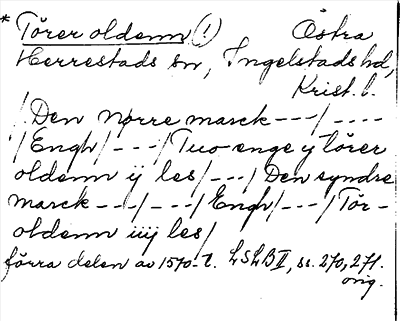 * Törer oldenn (!) Östra
Herrestads sn, Ingelstads hd,
Krist. l.
/Den norre marck ---/ ----
/Engh/ ---/Tuo enge y törer
oldenn ij les/ ---/ Den syndre
marck ---/---/Engh/---/Tör-
oldenn iiij les/
förra delen av 1570-t. LSLB II, ss. 270, 271.
orig.